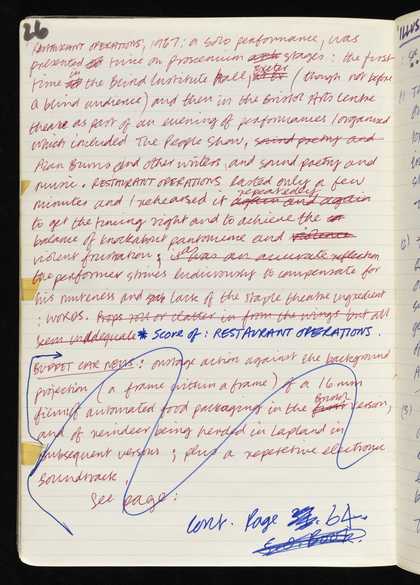 26
RESTAURANT OPERATIONS, 1967: a solo performance, was
presented time on proscenium stages: the first
time in the Blind Institute hall, Exeter / (though not before
a blind audience) and then in the Bristol Arts Centre
theatre as part of an evening of performances / organised
which included The People Show, sound poetry and
Alan Burns and other writers, and sound poetry and
music. RESTAURANT OPERATIONS lasted only a few
minutes and I rehearsed it again and again repeatedly
to get the timing right and to achieve the
balance of knockabout pantomime and violence
violent frustration; it was an accurate reflection as
the performer strives endlessly to compensate for
his muteness and lack of the staple theatre ingredient
: WORDS. Props roll or clatter in from the wings but all
seem inadequate * Score of: RESTAURANT OPERATIONS.
BUFFET CAR NEWS: onstage action against the background
projection (a frame within a frame) of a 16 mm
film of automated food packaging in the Bristol version,
and of reindeer being herded in Lapland in
subsequent versions; plus a repetitive electronic
soundtrack.
see page:
Cont. Page 64.